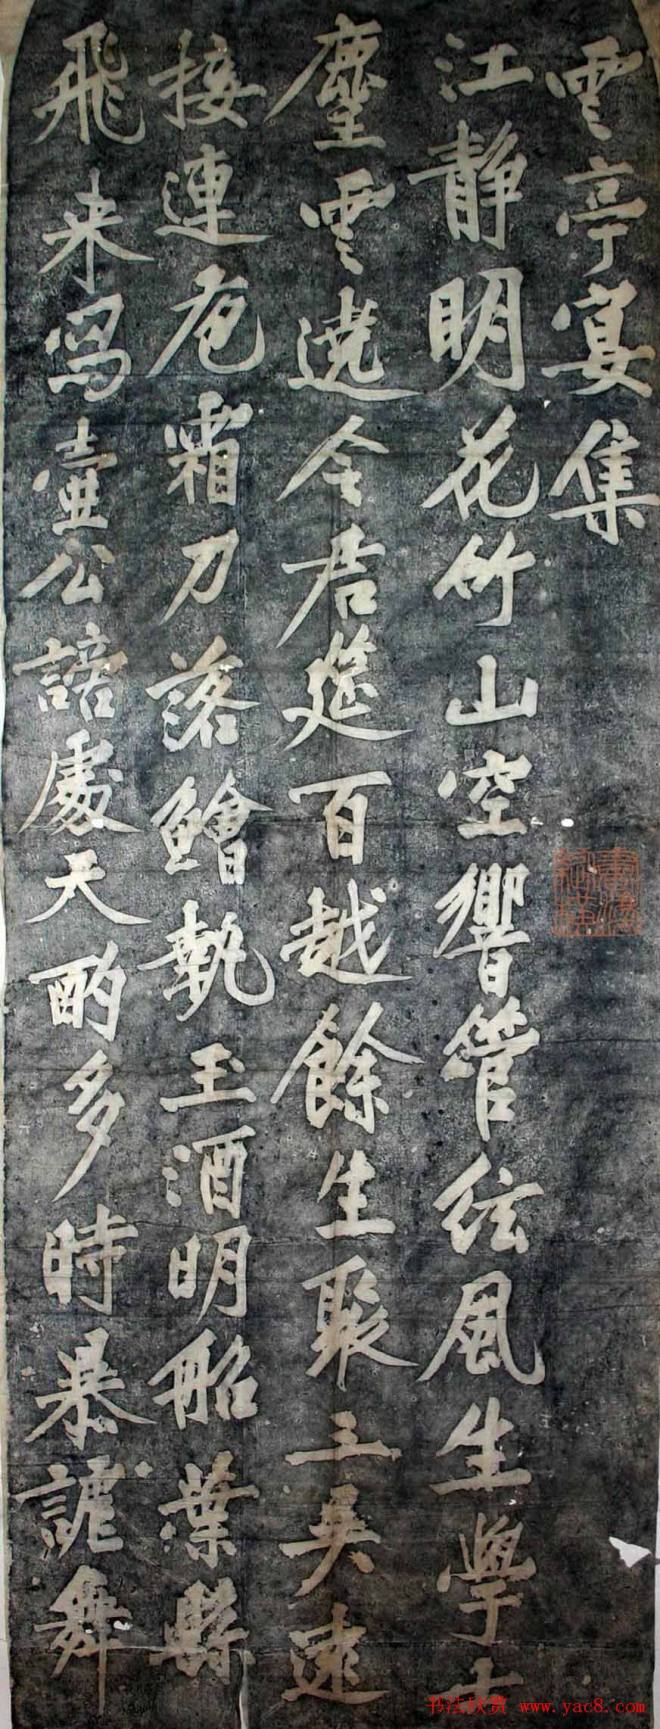 雲亭宴集
江静明花竹山空響管弦風生學士
麈雲遶令君筵百越餘生聚三吴遠
接連庖霜刀落鱠執玉酒明船葉縣
飛来舄壺公謫處天酌多時暴謔舞
书法欣赏 www.yac8.com